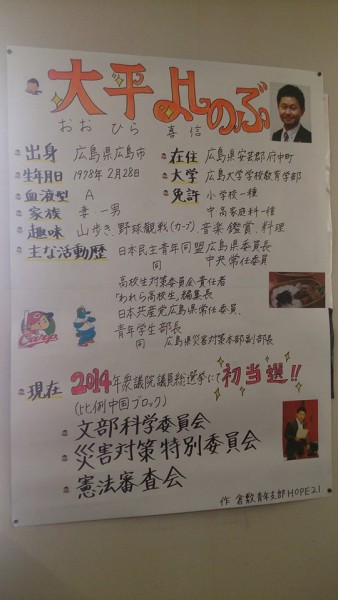 大平よしのぶ
おおひら 喜信
出身 広島県広島市
在住 広島県安芸郡府中町
生年月日 1978年2月28日
大学 広島大学学校教育学部
血液型 A
免許 小学校一種
中高家庭科一種
家族 妻 一男
趣味 山歩き、野球観戦(カープ)、音楽鑑賞、料理
主な活動歴 日本民主青年同盟広島県委員長
同 中央常任委員
高校生対策委員会責任者
「われら高校生」編集長
日本共産党広島県常任委員、
青年学生部長
同 広島県災害対策本部副部長
Carp
現在 2014年衆議院議員総選挙にて初当選!!
(比例中国ブロック)
文部科学委員会
災害対策特別委員会
憲法審査会
作 倉敷青年支部HOPE21